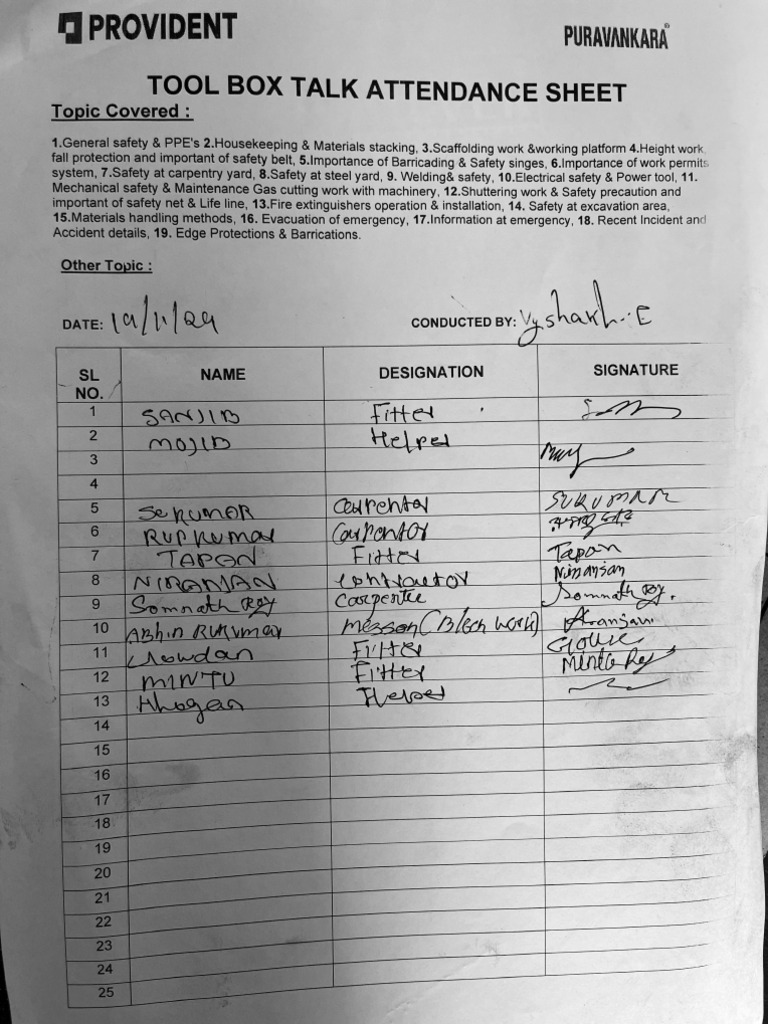 PROVIDENT
PURAVANKARA
TOOL BOX TALK ATTENDANCE SHEET
Topic Covered :
1.General safety & PPE's 2.Housekeeping & Materials stacking, 3.Scaffolding work &working platform 4.Height work
fall protection and important of safety belt, 5.Importance of Barricading & Safety singes, 6.Importance of work permits
system, 7.Safety at carpentry yard, 8.Safety at steel yard, 9. Welding& safety, 10.Electrical safety & Power tool, 11.
Mechanical safety & Maintenance Gas cutting work with machinery, 12.Shuttering work & Safety precaution and
important of safety net & Life line, 13.Fire extinguishers operation & installation, 14. Safety at excavation area,
15.Materials handling methods, 16. Evacuation of emergency, 17.Information at emergency, 18. Recent Incident and
Accident details, 19. Edge Protections & Barrications.
Other Topic :
DATE: 19/11/24 CONDUCTED BY: Vyshakh. E
SL NO. NAME DESIGNATION SIGNATURE
1 SANJIB Fitter
2 MOJID Helper
3
4
5 SUKUMOR Carpentor SUKUMAR
6 RUPKUMAR Carpentor
7 TAPON Fitter Tapan
8 NIRANJAN Contractor Niranjan
9 Somnath Roy Carpenter Somnath Roy.
10 Messon (Block work)
11 Fitter
12 MINTU Fitter Minto Roy
13 Helper
14
15
16
17
18
19
20
21
22
23
24
25